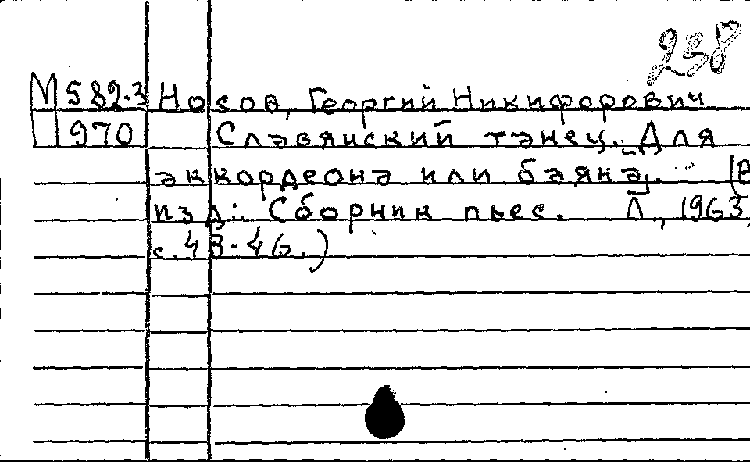 238
М 582.3 Носов, Георгий Никифорович
970 Славянский танец. Для
аккордеона или баяна. (В
изд: Сборник пьес. Л., 1963,
с. 43-46.)